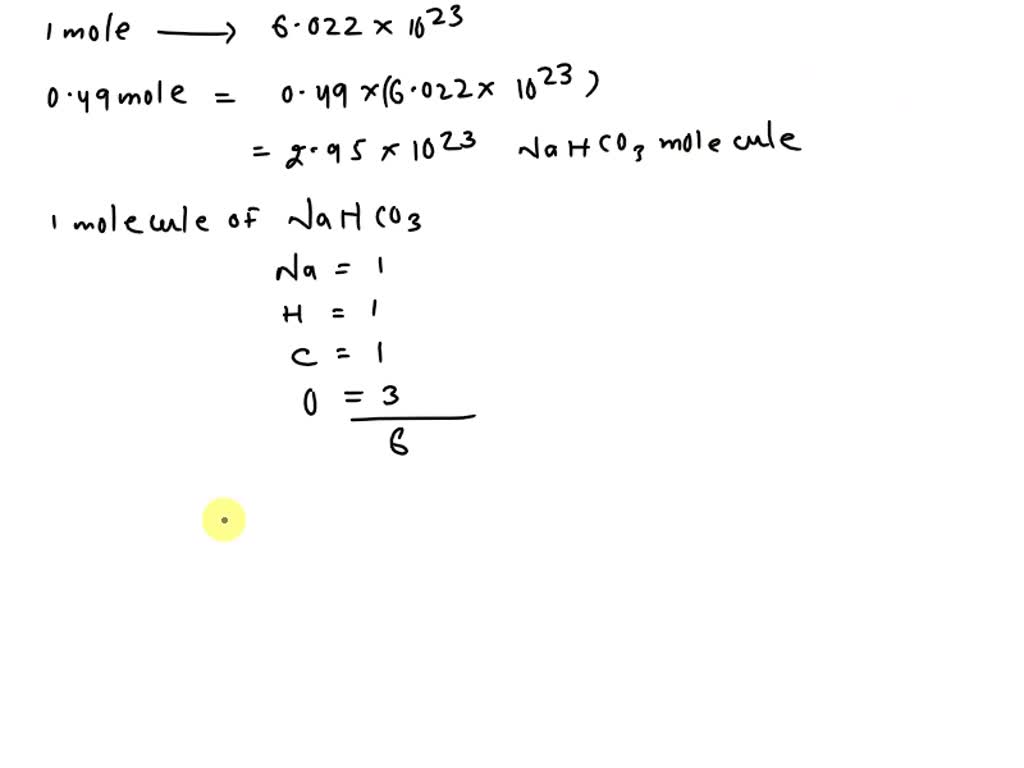 1 mole ⟶ 6.022 × 10²³
0.49 mole = 0.49 × (6.022 × 10²³)
= 2.95 × 10²³ NaHCO₃ molecule
1 molecule of NaHCO₃
Na = 1
H = 1
C = 1
O = 3
6